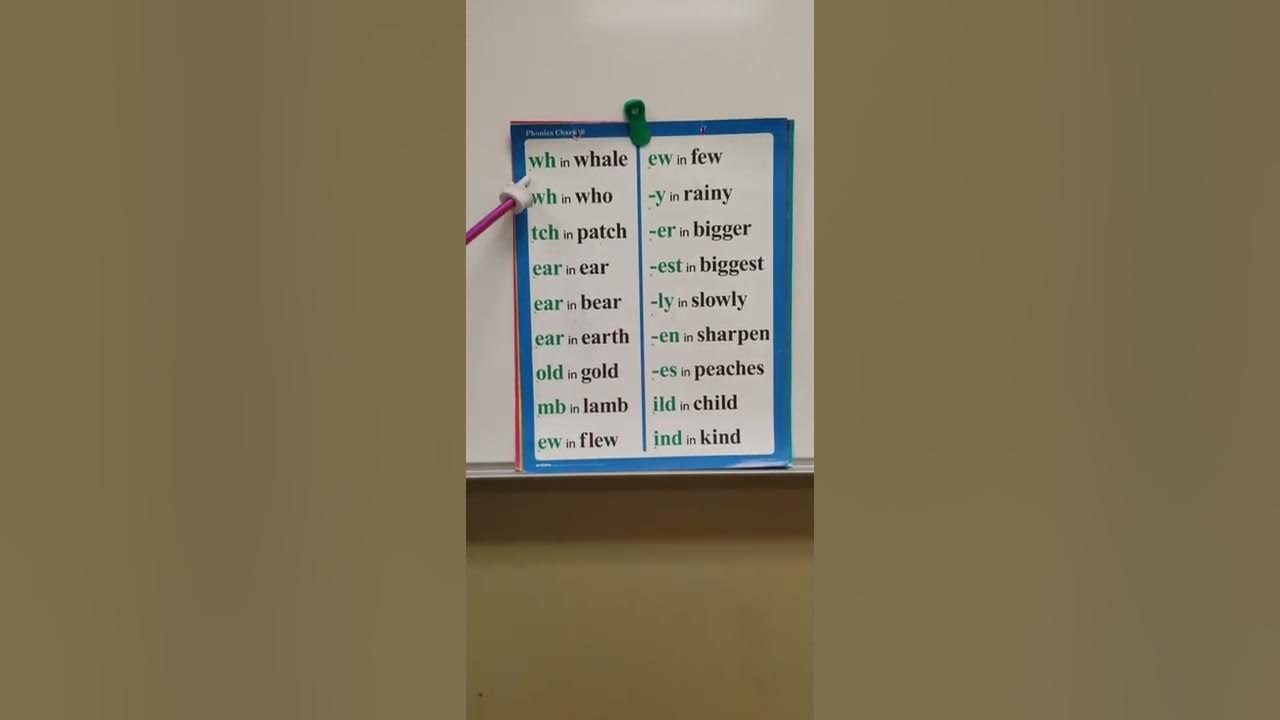 Phonics Chart
wh in whale
wh in who
tch in patch
ear in ear
ear in bear
ear in earth
old in gold
mb in lamb
ew in flew
ew in few
-y in rainy
-er in bigger
-est in biggest
-ly in slowly
-en in sharpen
-es in peaches
ild in child
ind in kind